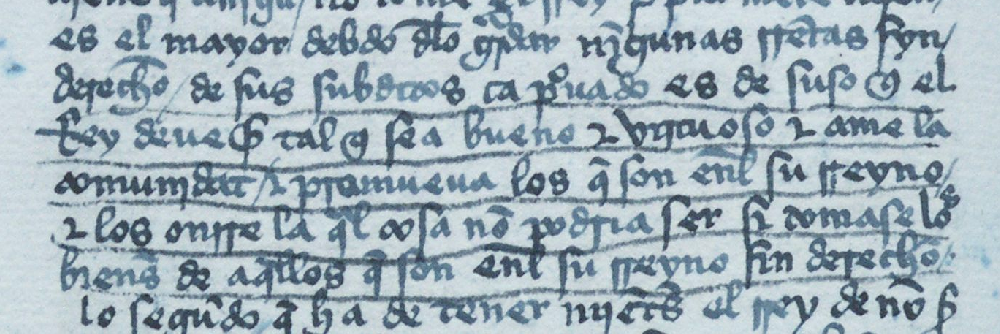 es el mayor debdo dlo grdar nigunas rrētas syn
derecho de sus subditos ca prouado es de suso q el
Rey deue ser tal q sea bueno & vertuoso & ame la
comunidat & promueua los q̄ son enl su rreyno
& los onrre la q̄l cosa nō podria ser si tomase los
bienes de aq̄llos q̄ son enl su rreyno sin derecho
lo segūdo q̄ ha de tener mietes el rrey de nō